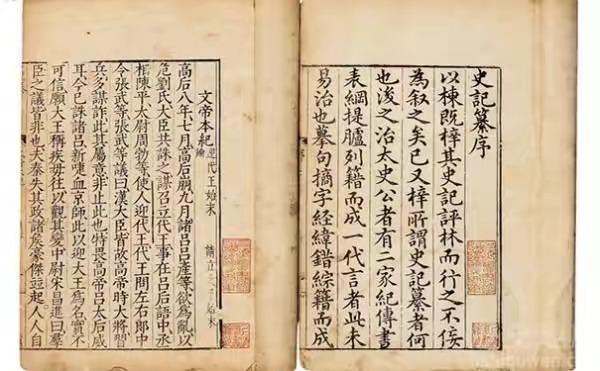 史記纂序
以棟既梓其史記評林而行之不佞
為叙之矣已又梓所謂史記纂者何
也後之治太史公者有二家紀傳書
表綱提臚列籍而成一代言者此未
易治也摹句摘字經緯錯綜籍而成
文帝本紀 迎代王始末
高后八年七月高后崩九月諸呂呂產等欲為亂以
危劉氏大臣共誅之謀召立代王事在呂后語中丞
相陳平太尉周勃等使人迎代王代王問左右郎中
令張武等張武等議曰漢大臣皆故高帝時大將習
兵多謀詐此其屬意非止此也特畏高帝呂太后威
耳今已誅諸呂新啑血京師此以迎大王為名實不
可信願大王稱疾毋往以觀其變中尉宋昌進曰羣
臣之議皆非也夫秦失其政諸矦豪傑並起人人自